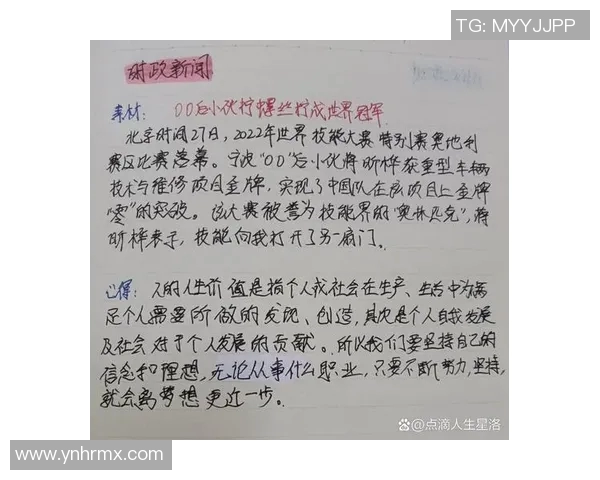 TG: MYYJJPP
时政新闻
素材: 00后小伙拧螺丝拧成世界冠军
北京时间27日,2022年世界技能大赛特别赛奥地利
赛区比赛落幕。宁波"00"后小伙蒋昕桦获重型车辆
技术与维修项目金牌,实现了中国队在该项目上金牌
"零"的突破。该大赛被誉为技能界的"奥林匹克",蒋
昕桦表示,技能向我打开了另一扇门。
心得: 人的人生价值是指个人或社会在生产、生活中为满
足个人需要所做的发现、创造,其次是个人自我发展
及社会对于个人发展的贡献。所以我们要坚持自己的
信念和理想,无论从事什么职业,只要不断努力,坚持,
就会离梦想更近一步。
@点滴人生星洛
www.ynhrmx.com